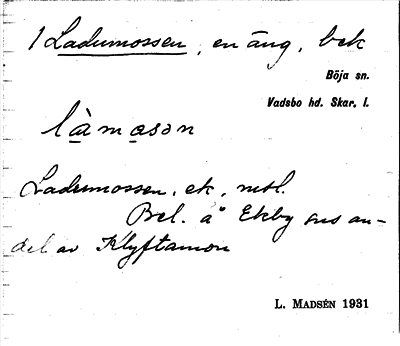 1 Ladumossen, en äng, bek
Böja sn.
Vadsbo hd. Skar. l.
làmasən
Ladumossen, ek, mtl.
Bel. å Ekby ens an-
del av Klyftamon
L. MADSÉN 1931